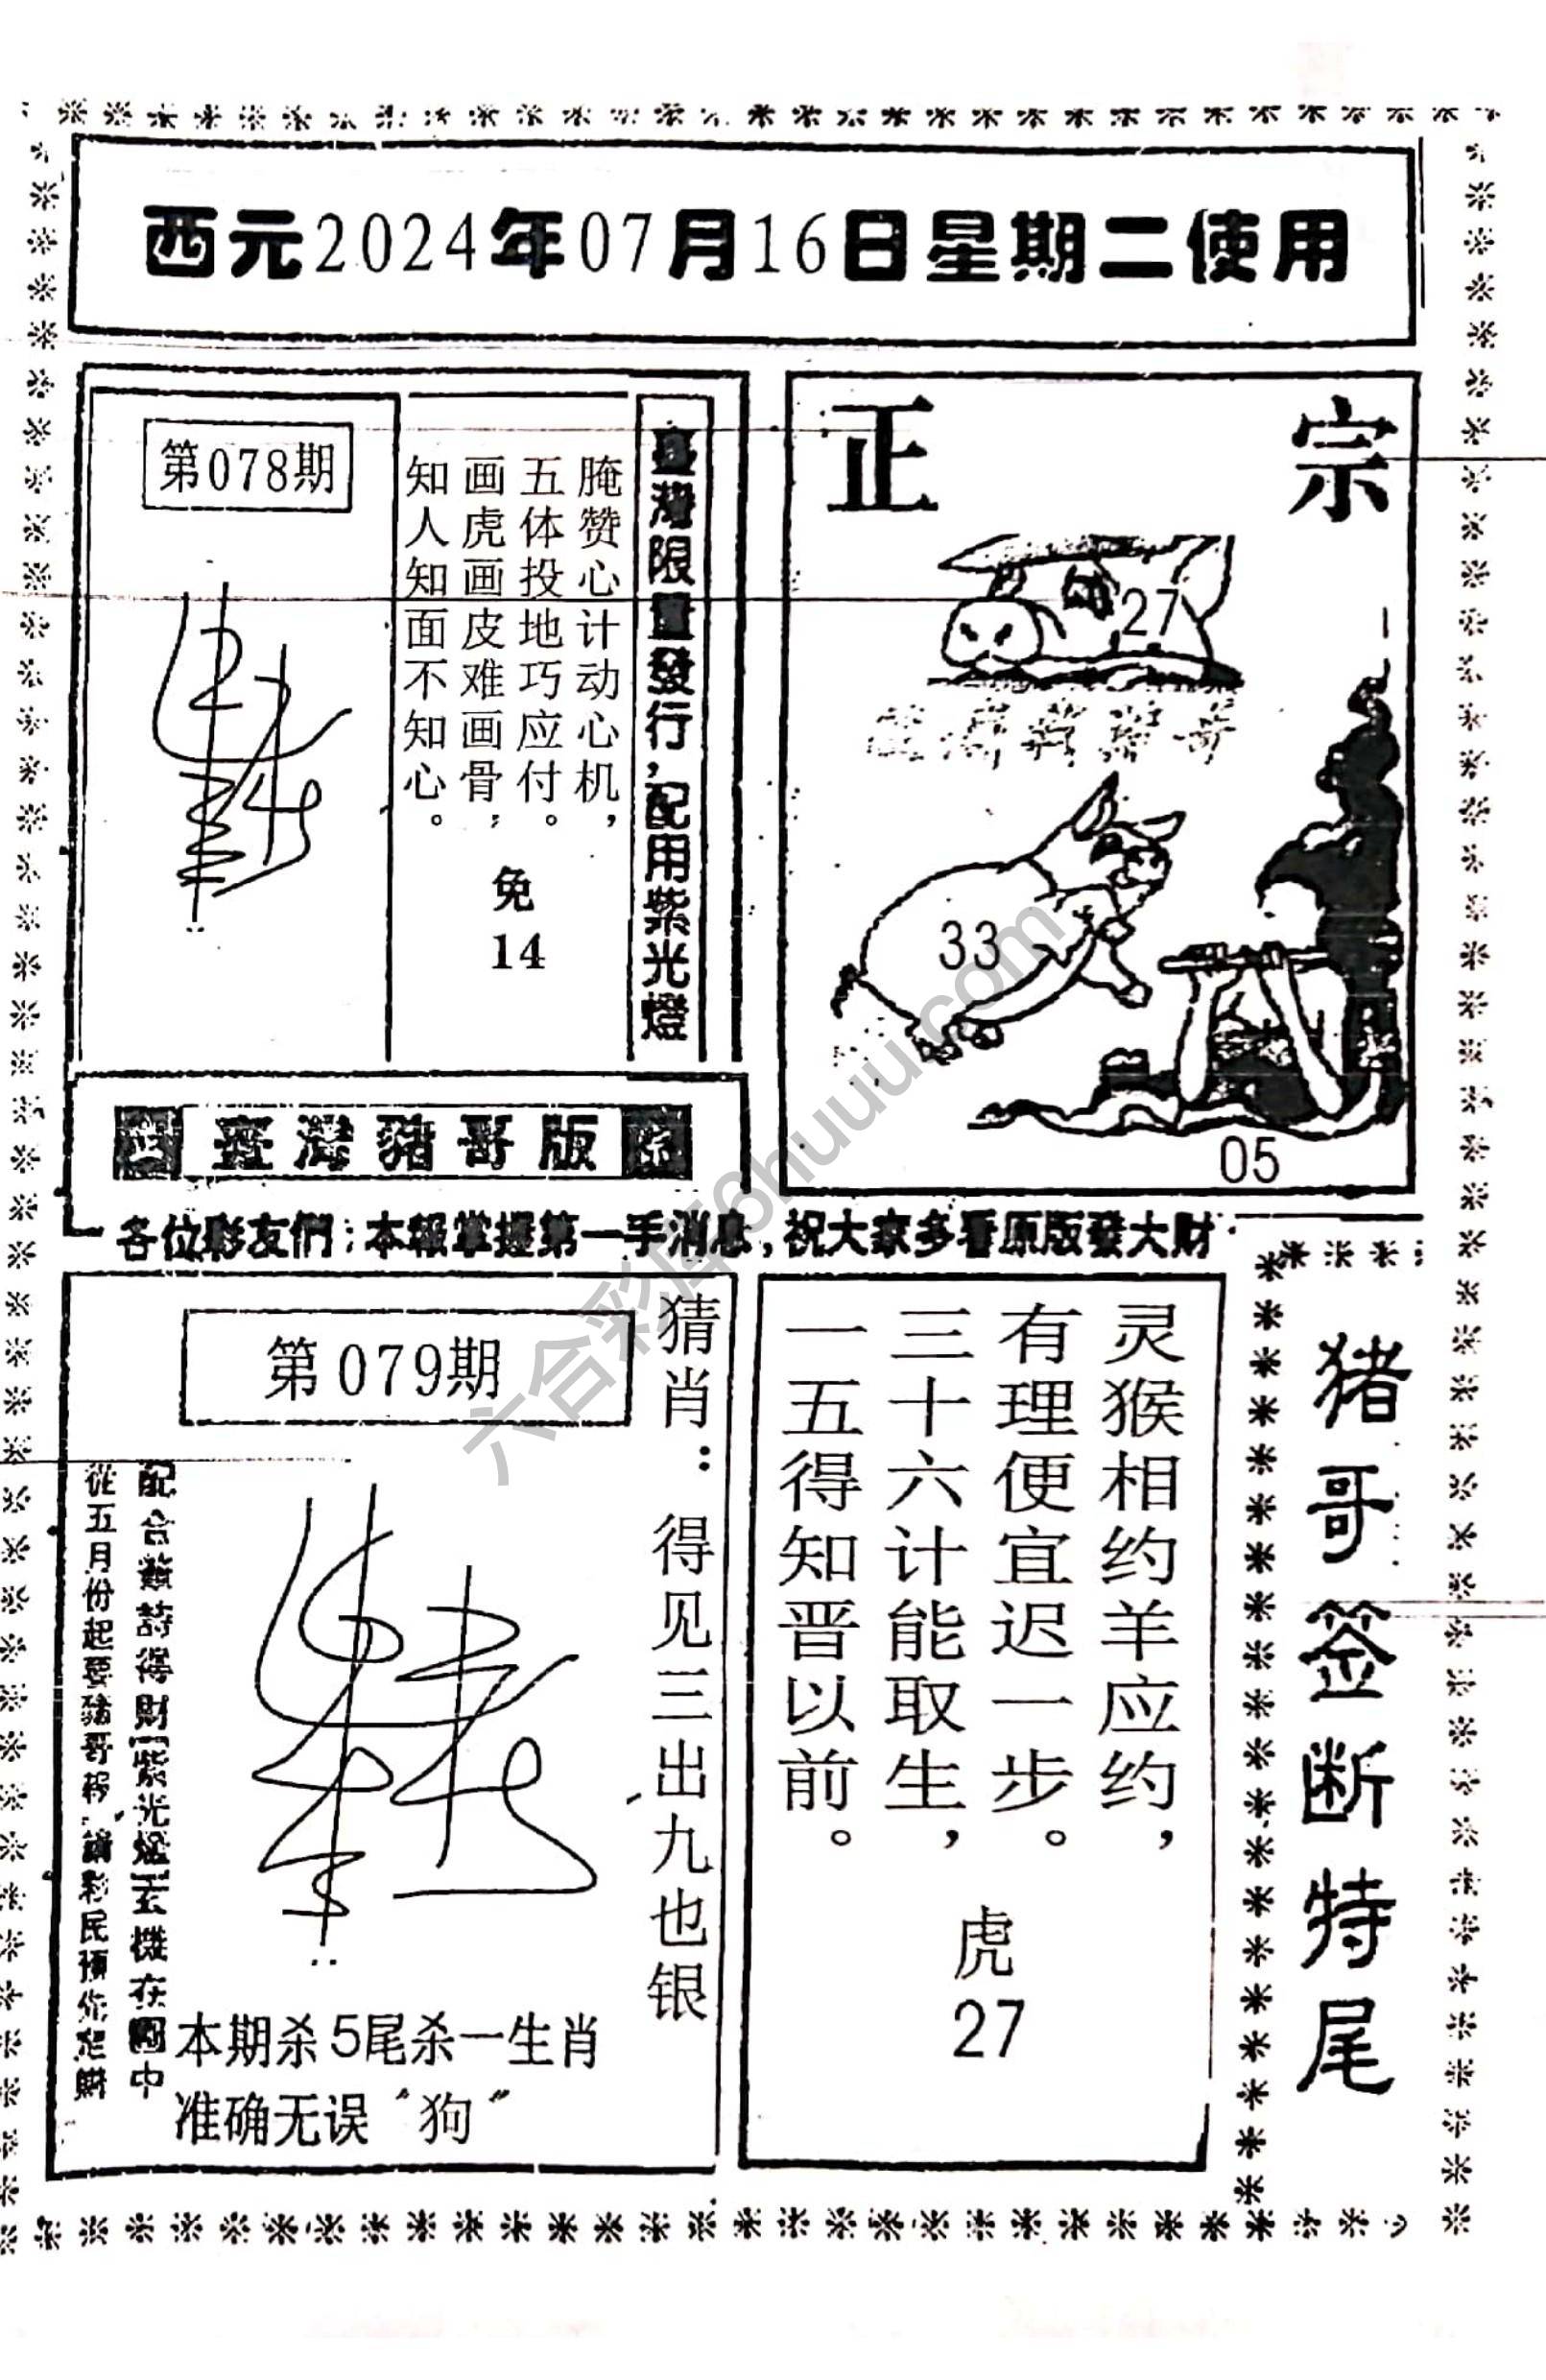 西元2024年07月16日星期二使用
第078期
臺灣限量發行,配用紫光燈
腌赞心计动心机，
五体投地巧应付。
画虎画皮难画骨，
知人知面不知心。
兔
14
正宗
27
33
05
臺灣豬哥版
各位彩友們:本報掌握第一手消息,祝大家多看原版發大財
第079期
猜肖：得见三出九也银
配合籤詩得財[紫光燈]玄機在圖中
從五月份起要豬哥報
本期杀5尾杀一生肖
准确无误“狗”
灵猴相约羊应约，
有理便宜迟一步。
三十六计能取生，
一五得知晋以前。
虎
27
猪哥签断特尾
六合彩库6huuu.com